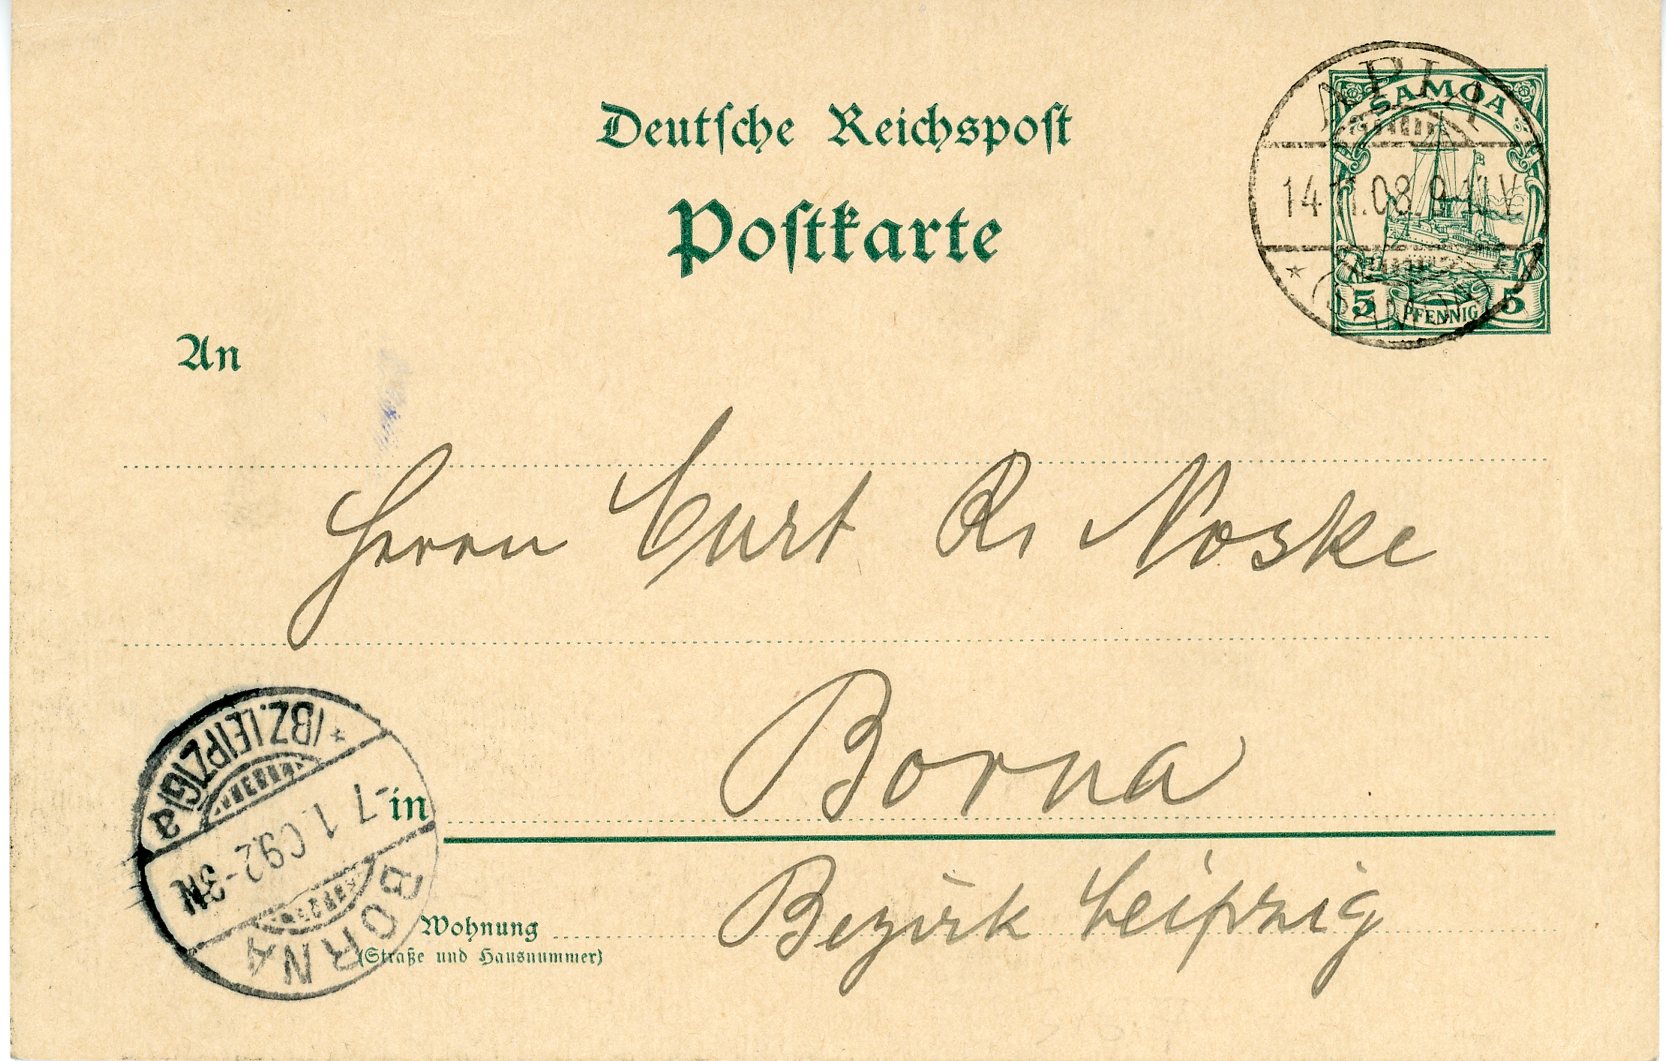 Deutsche Reichspost
Postkarte
APIA
14 11.08. 9-11V
* (SAMOA) *
SAMOA
5 PFENNIG 5
An
Herrn Curt R. Noske
in Borna
Bezirk Leipzig
Wohnung
(Straße und Hausnummer)
BORNA
-7 1.09.2-3N
* (BZ. LEIPZIG) a